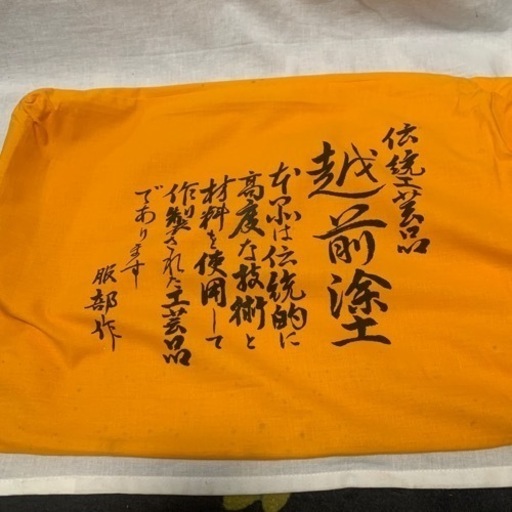 伝統工芸品
越前塗
本品は伝統的に
高度な技術と
材料を使用して
作製された工芸品
であります
服部作